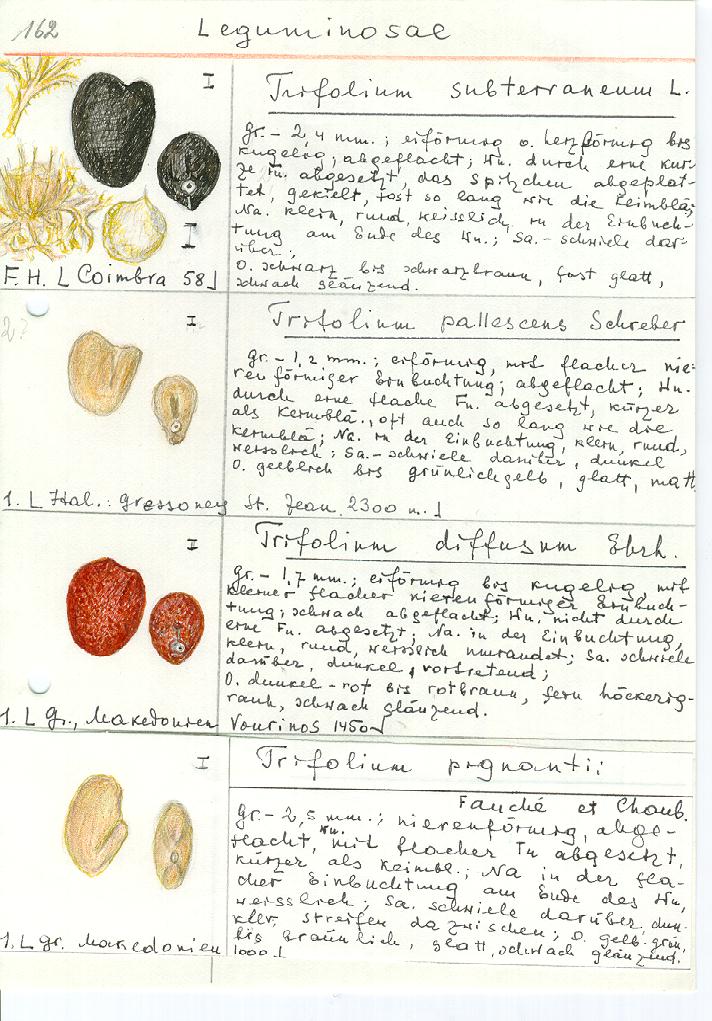 162
Leguminosae
I
Trifolium subterraneum L.
gr. - 2,4 mm.; eiförmig o. herzförmig bis
kugelig; abgeflacht; Wu. durch eine kur-
ze Fu. abgesetzt, das Spitzchen abgeplat-
tet, gekielt, fast so lang wie die Keimblä;
Na. klein, rund, weisslich, in der Einbuch-
tung am Ende des Wu.; Sa. - schwiele dar-
über;
O. schwarz bis schwarzbraun, fast glatt,
schwach glänzend.
I
F. H. L Coimbra 58 ⅃
2?
I
Trifolium pallescens Schreber
gr. - 1,2 mm.; eiförmig, mit flacher nie-
renförmiger Einbuchtung; abgeflacht; Wu.
durch eine flache Fu. abgesetzt, kürzer
als Keimblä., oft auch so lang wie die
Keimblä; Na. in der Einbuchtung, klein, rund,
weisslich; Sa. - schwiele darüber, dunkel
O. gelblich bis grünlichgelb, glatt, matt
1. L Ital.: Gressoney St. Jean 2300 m. ⅃
I
Trifolium diffusum Ehrh.
gr. - 1,7 mm.; eiförmig bis kugelig, mit
kleiner flacher nierenförmiger Einbuch-
tung; schwach abgeflacht; Wu. nicht durch
eine Fu. abgesetzt; Na. in der Einbuchtung,
klein, rund, weisslich umrandet; Sa. schwiele
darüber, dunkel, vortretend;
O. dunkel-rot bis rotbraun, fein höckerig-
rauh, schwach glänzend.
1. L Gr., Makedonien Vourinos 1450 ⅃
I
Trifolium pignantii
Fauché et Chaub.
gr. - 2,5 mm.; nierenförmig, abge-
flacht, Wu. mit flacher Fu abgesetzt,
kürzer als Keimbl.; Na in der fla-
chen Einbuchtung am Ende des Wu,
weisslich; Sa. schwiele darüber, dun-
kler streifen dazwischen; O. gelb-grün,
bis bräunlich, glatt, schwach glänzend.
1. L gr. Makedonien 1000 ⅃